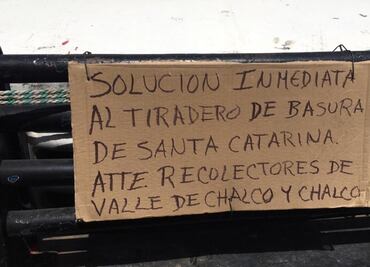 SOLUCION INMEDIATA
AL TIRADERO DE BASURA
DE SANTA CATARINA.
ATTE. RECOLECTORES DE
VALLE DE CHALCO Y CHALCO